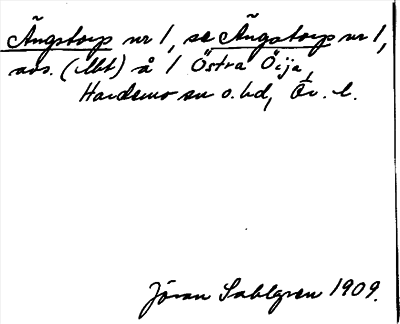 Ängstorp nr 1, se Ängstorp nr 1,
avs. (lht) å 1 Östra Öija,
Hardemo sn o. hd, Ör. l.
Jöran Sahlgren 1909.